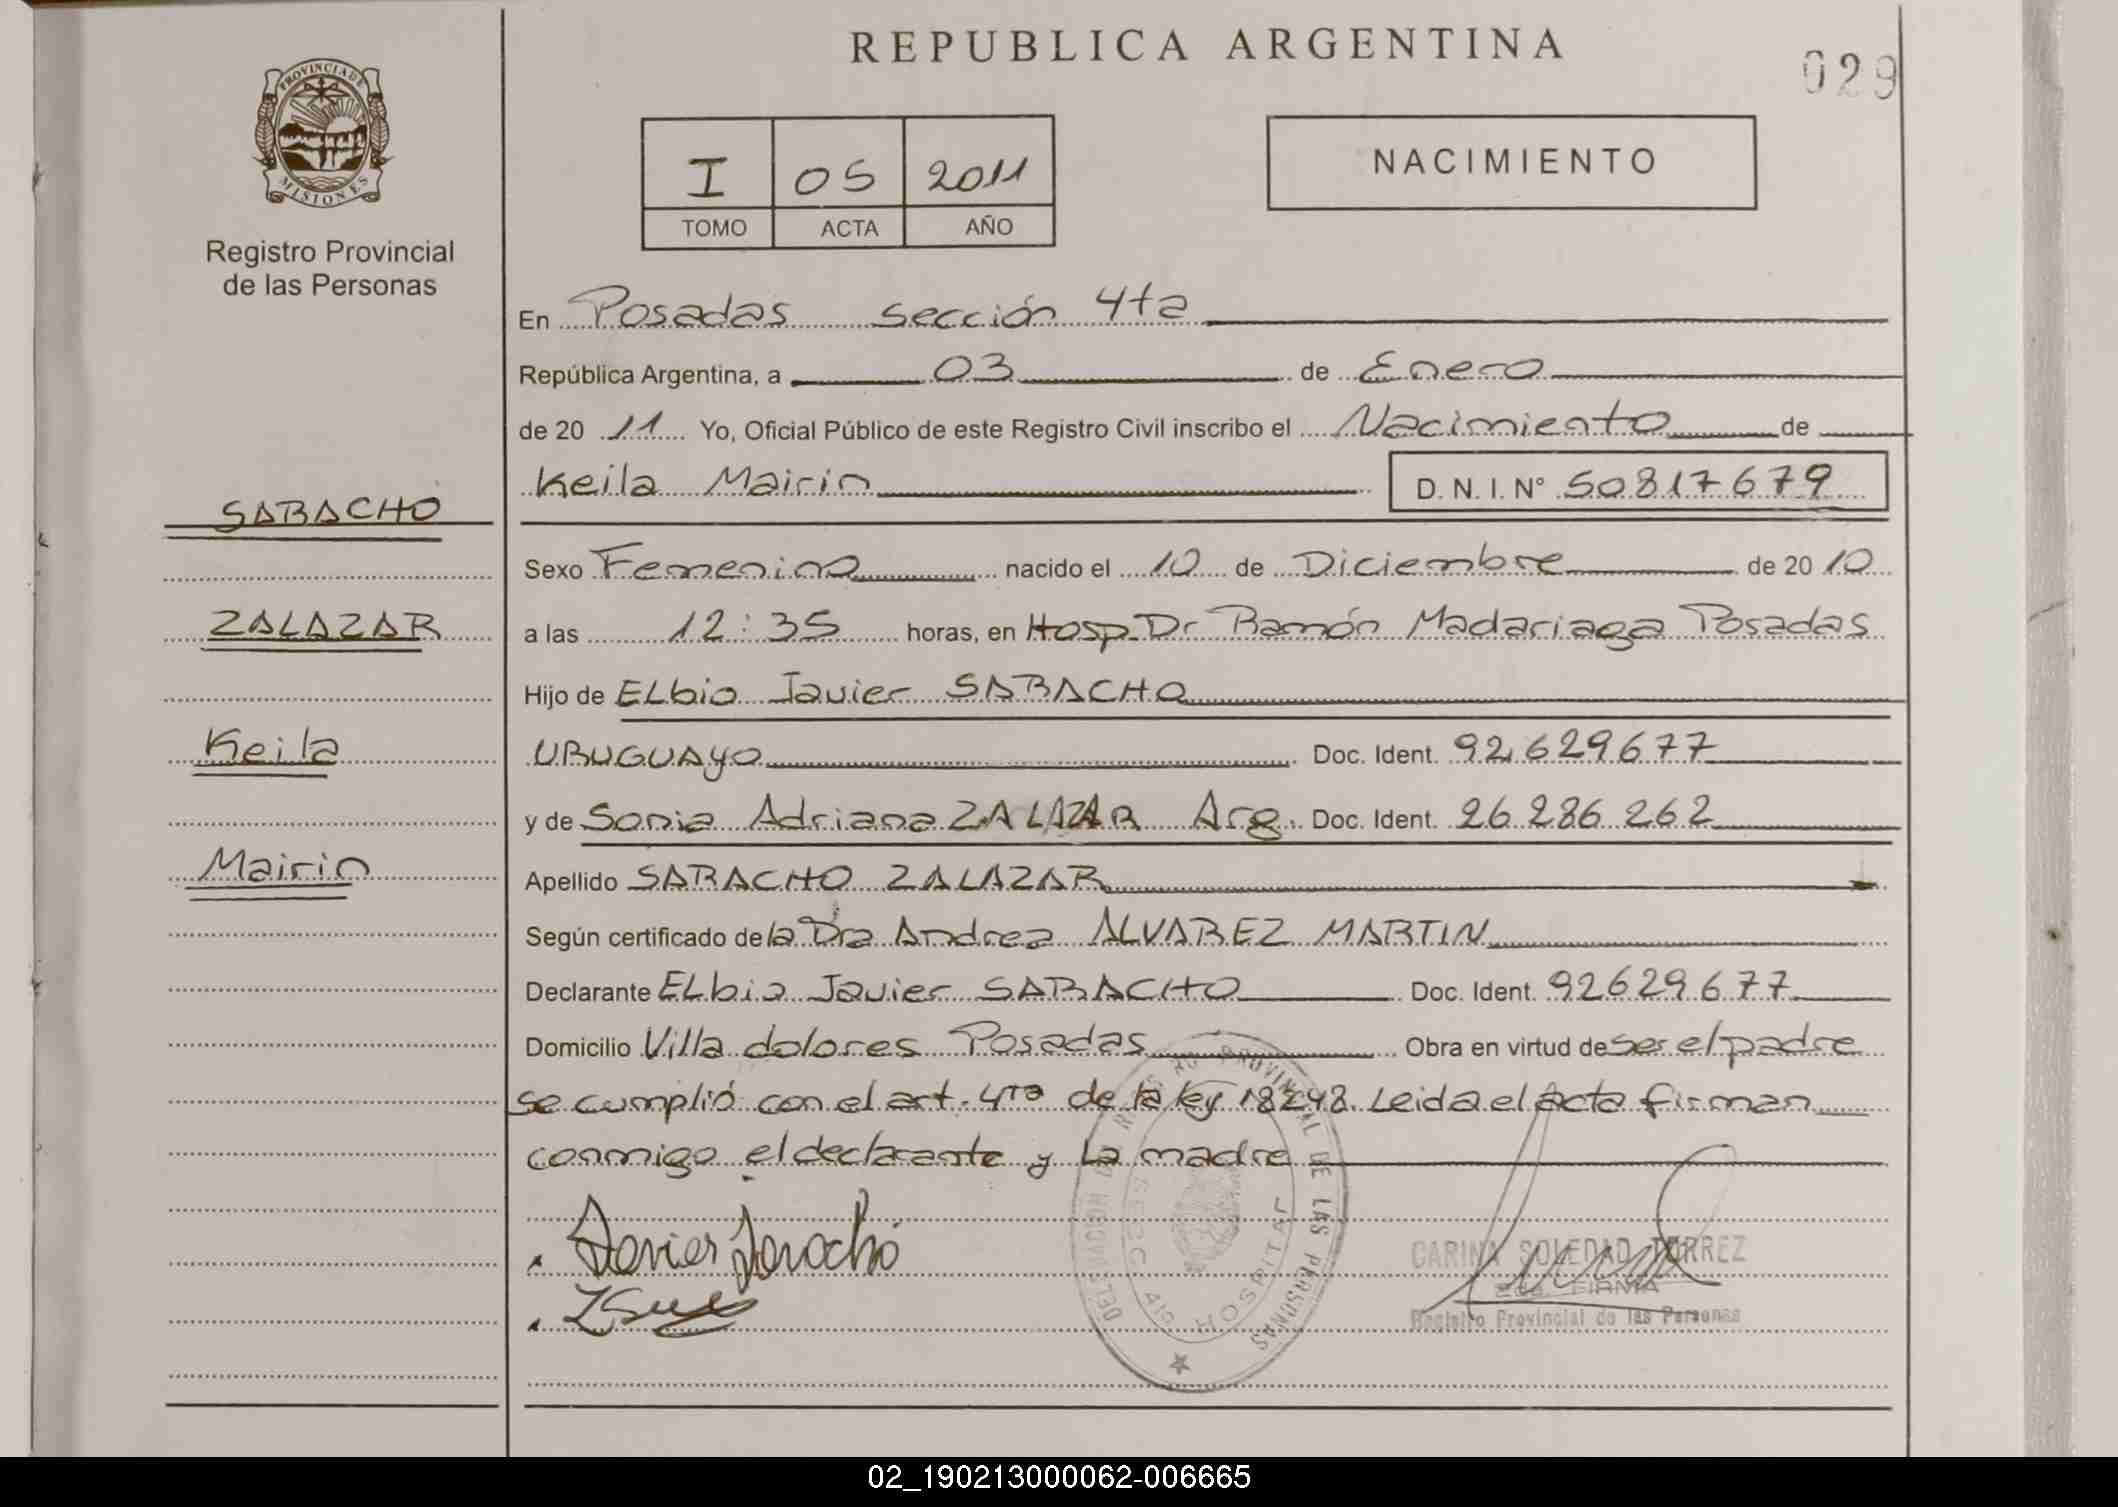 REPUBLICA ARGENTINA
029
PROVINCIA DE
MISIONES
Registro Provincial
de las Personas
I 05 2011
TOMO ACTA AÑO
NACIMIENTO
En Posadas sección 4ta
República Argentina, a 03 de Enero
de 20 11 Yo, Oficial Público de este Registro Civil inscribo el Nacimiento de
Keila Mairin D. N. I. N° 50817679
SARACHO
ZALAZAR
Keila
Mairin
Sexo Femenino nacido el 10 de Diciembre de 20 10
a las 12:35 horas, en Hosp. Dr Ramón Madariaga Posadas
Hijo de ELbio Javier SARACHO
URUGUAyo Doc. Ident. 92629677
y de Sonia Adriana ZALAZAR Arg. Doc. Ident. 26 286 262
Apellido SARACHO ZALAZAR
Según certificado de la Dra Andrea ALVAREZ MARTIN
Declarante ELbio Javier SARACHO Doc. Ident. 92629677
Domicilio Villa dolores Posadas Obra en virtud de ser el padre
se cumplió con el art. 4to de la ley 18248. Leida el acta firman
conmigo el declarante y La madre
Javier Saracho
CARINA SOLEDAD TORREZ
FIRMA
Registro Provincial de las Personas
PROVINCIAL DE LAS PERSONAS
HOSPITAL
02_190213000062-006665